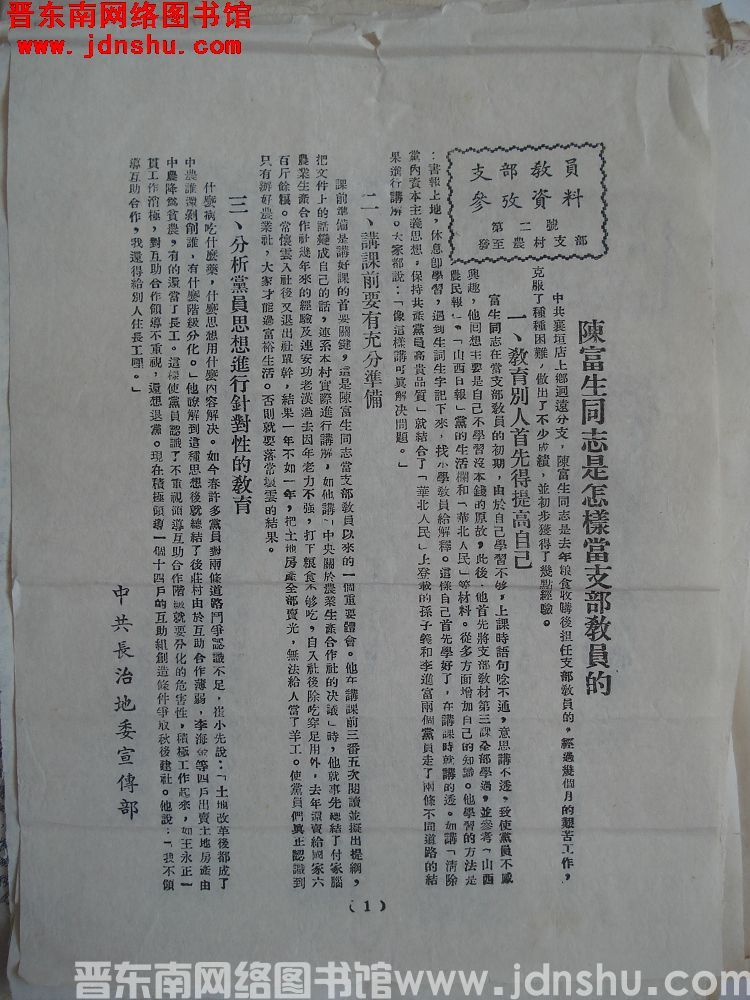 晋东南网络图书馆
www.jdnshu.com
支部教員
參攷資料
第二號
發至農村支部
陳富生同志是怎樣當支部教員的
中共襄垣店上鄉迥遠分支，陳富生同志是去年粮食收購後担任支部敎員的，經過幾個月的艱苦工作，
克服了種種困難，做出了不少成績，並初步獲得了幾點經驗。
一、敎育別人首先得提高自己
富生同志在當支部敎員的初期，由於自己學習不够，上課時語句唸不通，意思講不透，致使黨員不感
興趣，他回想主要是自己不學習沒本錢的原故，此後，他首先將支部敎材第三課全部學過，並參考「山西
農民報」，「山西日報」黨的生活欄和「華北人民」等材料。從多方面增加自己的知識。他學習的方法是
：書報上地，休息卽學習，遇到生詞生字記下來，找小學敎員給解釋。這樣自己首先學好了，在講課時就講的透。如講「淸除
黨內資本主義思想，保持共產黨員高貴品質」就結合了「華北人民」上登載的孫子義和李進富兩個黨員走了兩條不同道路的結
果進行講解。大家都說：「像這樣講可眞解決問題。」
二、講課前要有充分準備
課前準備是講好課的首要關鍵，這是陳富生同志當支部敎員以來的一個重要體會。他在講課前三番五次閱讀並擬出提綱，
把文件上的話變成自己的話，連系本村實際進行講解，如他講「中央關於農業生產合作社的决議」時，他就事先總結了付家腦
農業生產合作社幾年來的經驗及連安功老漢過去因年老力不強，打下粮食不够吃，自入社後除吃穿足用外，去年還賣給國家六
百斤餘粮。常懷雲入社後又退出社單幹，結果一年不如一年，把土地房產全部賣光，無法給人當了羊工。使黨員們眞正認識到
只有辦好農業社，大家才能過富裕生活。否則就要落常懷雲的結果。
三、分析黨員思想進行針對性的敎育
什麽病吃什麽藥，什麽思想用什麽內容解决。如今春許多黨員對兩條道路鬥爭認識不足，崔小先說：「土地改革後都成了
中農誰還剝削誰，有什麽階級分化。」他瞭解到這種思想後就總結了後莊村由於互助合作薄弱，李海金等四戶出賣土地房產由
中農降爲貧農，有的還當了長工。這樣使黨員認識了不重視領導互助合作階級就要分化的危害性，積極工作起來，如王永正一
貫工作消極，對互助合作領導不重視，還想退黨。現在積極領導一個十四戶的互助組創造條件爭取秋後建社。他說：「我不領
導互助合作，我還得給別人住長工哩。」
中共長治地委宣傳部
(1)
晋东南网络图书馆www.jdnshu.com